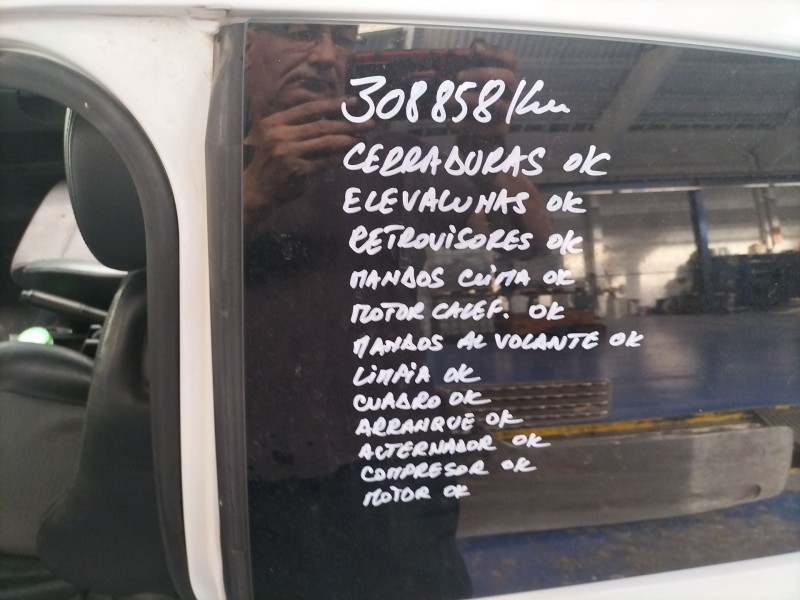 308858/Km
CERRADURAS OK
ELEVALUNAS OK
RETROVISORES OK
MANDOS CLIMA OK
MOTOR CALEF. OK
MANDOS AL VOLANTE OK
LIMPIA OK
CUADRO OK
ARRANQUE OK
ALTERNADOR OK
COMPRESOR OK
MOTOR OK